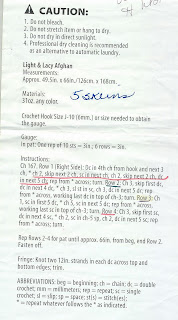 CAUTION:
1. Do not bleach.
2. Do not stretch item or hang to dry.
3. Do not dry in direct sunlight.
4. Professional dry cleaning is recommended
as an alternative to automatic laundry.
Light & Lacy Afghan
Measurements:
Approx. 49.5in. x 66in./126cm. x 168cm.
Materials:
31oz. any color.
5 skeins
Crochet Hook Size J-10 (6mm.) or size needed to obtain
the gauge.
Gauge:
In pat: One rep of 10 sts = 3in.; 6 rows = 3in.
Instructions:
Ch 167. Row 1 (Right Side): Dc in 4th ch from hook and next 3
ch, * ch 2, skip next 2 ch, sc in next ch, ch 2, skip next 2 ch, dc
in next 5 ch; rep from * across; turn. Row 2: Ch 3, skip first dc,
dc in next 4 dc, * ch 3,
in sc, ch 3, dc in next 5 dc; rep
from * across, working last dc in top of ch-3; turn. Row 3: Ch
1, sc in first 5 dc, * ch 5, sc in next 5 dc; rep from * across,
working last sc in top of ch-3; turn. Row 4: Ch 3, skip first sc,
dc in next 4 sc, * ch 2, sc in ch-5 sp, ch 2, dc in next 5 sc; rep
from * across; turn.
Rep Rows 2-4 for pat until approx. 66in. from beg, end Row 2.
Fasten off.
Fringe: Knot two 12in. strands in each dc across top and
bottom edges; trim.
ABBREVIATIONS: beg = beginning; ch = chain; dc = double
crochet; mm = millimeters; rep = repeat; sc = single
crochet; sl = slip; sp = space; st(s) = stitch(es);
* = repeat whatever follows the * as indicated.